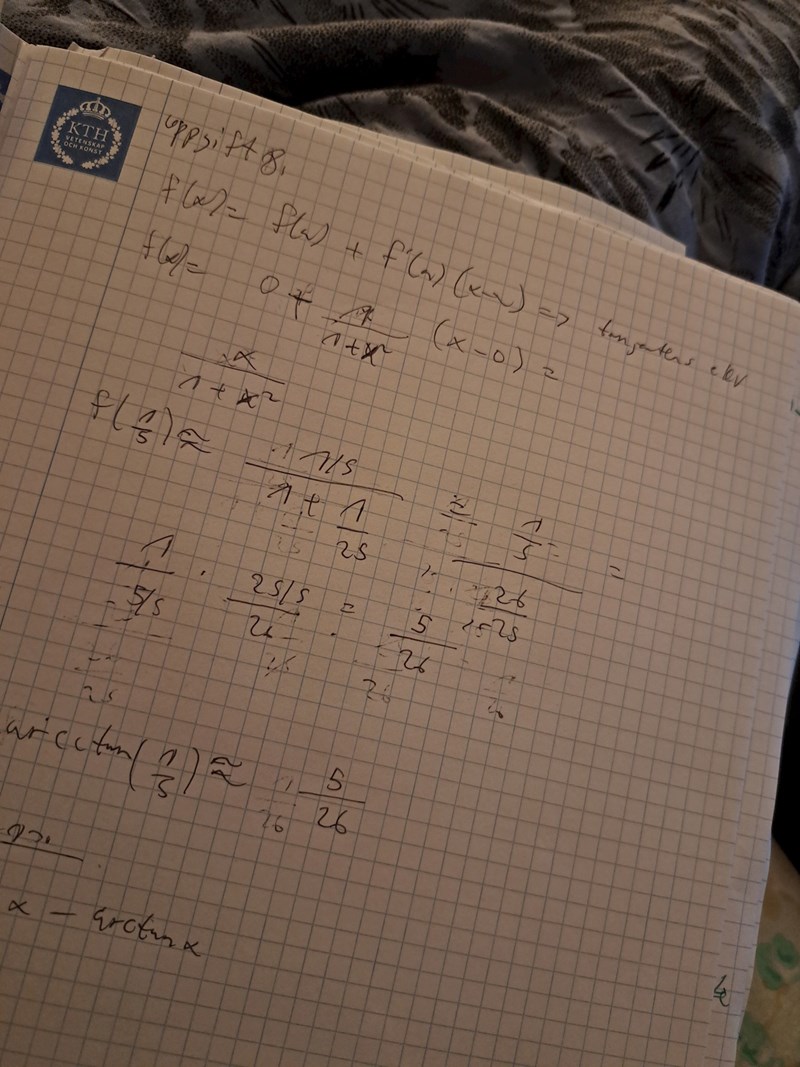 KTH
VETENSKAP
OCH KONST
uppgift 8.
f(x) = f(a) + f'(a)(x-a) => tangentens ekv
f(x) = 0 + 1/(1+x²) (x-0) =
x/(1+x²)
f(1/5) ≈ (1/5)/(1 + 1/25) = (1/5)/(26/25) =
1/5 · 25/5/26 = 5/26
arcctan(1/5) ≈ 5/26
x - arctan x